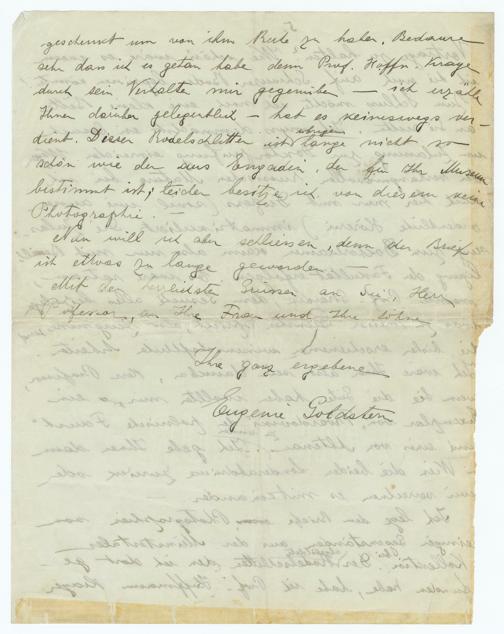 geschenkt um von ihm Ruhe zu haben. Bedaure
sehr dass ich es getan habe denn Prof. Hoffm. Krayer
durch sein Verhalten mir gegenüber — ich erzähle
Ihnen darüber gelegentlich — hat es keineswegs ver-
dient. Dieser Rodelschlitten ist übrigens lange nicht so
schön wie der aus Engadin, der für Ihr Museum
bestimmt ist; leider besitze ich von diesem keine
Photographie. —
Nun will ich aber schliessen, denn der Brief
ist etwas zu lange geworden —
Mit den herzlichsten Grüssen an Sie, Herr
Professor, an Ihre Frau und Ihre Söhne
Ihre ganz ergebene
Eugenie Goldstern